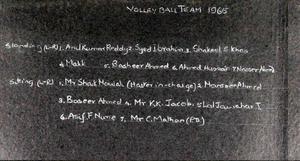 VOLLEY BALL TEAM 1965
Standing (L-R) 1. Anil Kumar Reddy 2. Syed Ibrahim 3. Shakeel S Khan
4. Malik 5. Basheer Ahmed 6. Ahmed Hussain 7. Nisar Ahmed
Sitting (L-R) 1. Mr Shaik Moulali (Master in-charge) 2. Mansoor Ahmed
3. Baseer Ahmed 4. Mr K.K. Jacob. 5.
6. Asif. F. Nune 7. Mr C. Mathan (P.D.)